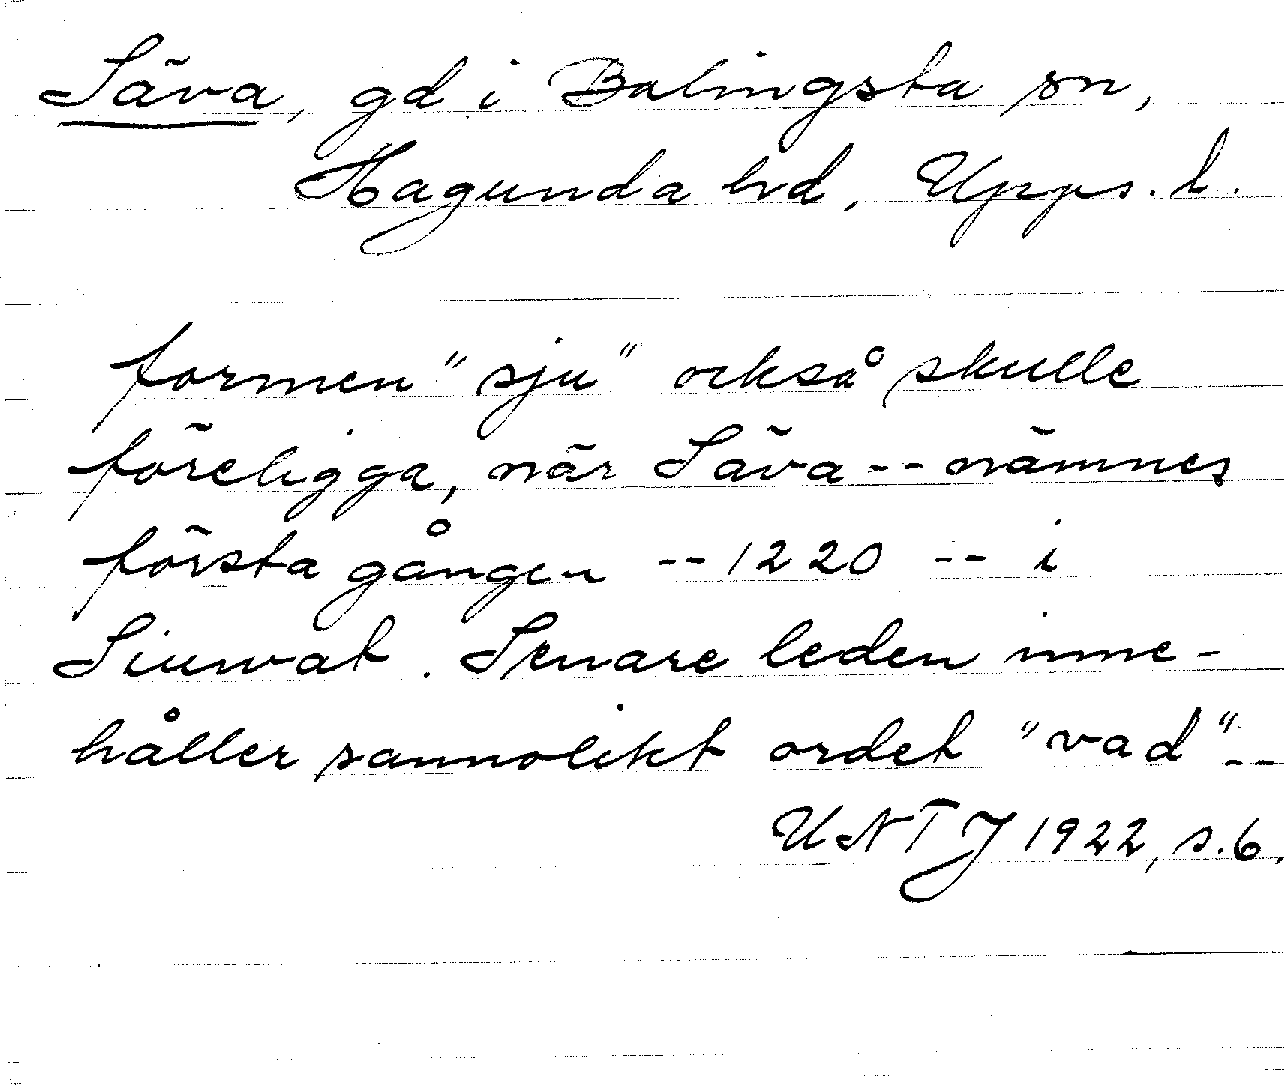 Säva, gd i Balingsta sn,
Hagunda hd, Upps. l.
formen "sju" också skulle
föreligga, när Säva -- nämnes
första gången -- 1220 -- i
Siuwat. Senare leden inne-
håller sannolikt ordet "vad" --
UNTJ 1922, s. 6.